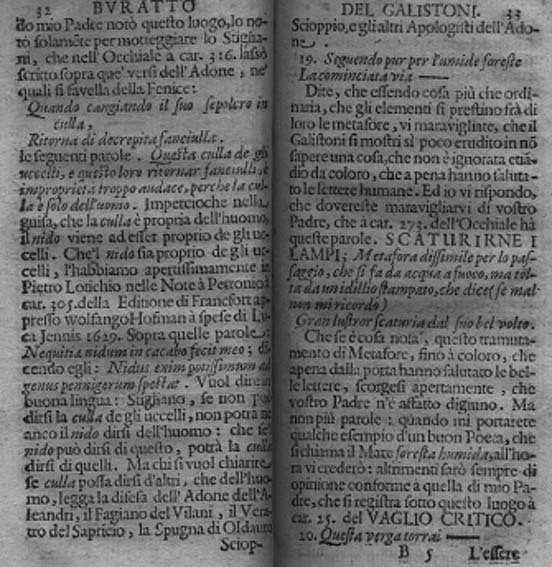 32 BVRATTO
do mio Padre notò questo luogo, lo no-
tò solamẽte per motteggiare lo Stiglia-
ni, che nell'Occhiale à car. 316. lassò
scritto sopra que' versi dell'Adone, ne'
quali si favella della Fenice:
Quando cangiando il suo sepolcro in
culla,
Ritorna di decrepita fanciulla.
le seguenti parole. Questa culla de gli
uccelli, e questo loro ritornar fanciulli, è
improprietà troppo audace, perche la cul-
la è solo dell'uomo. Impercioche nella
guisa, che la culla è propria dell'huomo,
il nido viene ad esser proprio de gli uc-
celli. Che'l nido sia proprio de gli uc-
celli, l'habbiamo apertissimamente in
Pietro Lotichio nelle Note à Petronio à
car. 305. della Editione di Francfort ap-
presso wolfango Hofman à spese di Lu-
ca Jennis 1629. Sopra quelle parole:
Nequitia nidum in cacabo fecit meo; di-
cendo egli: Nidus enim potissimum ad
genus pennigerum spectat. Vuol dire in
buona lingua: Stigliano, se non può
dirsi la culla de gli uccelli, non potrà nè
anco il nido dirsi dell'huomo: che se
nido può dirsi di questo, potrà la culla
dirsi di quelli. Ma chi si vuol chiarire
se culla possa dirsi d'altri, che dell'huo-
mo, legga la difesa dell'Adone dell'A-
leandri, il Fagiano del Vilani, il Vera-
tro del Sapricio, la Spugna di Oldauro
Sciop-
DEL GALISTONI. 33
Scioppio, e gli altri Apologisti dell'Ado-
ne.
19. Seguendo pur per l'umide foreste
La cominciata via ——
Dite, che essendo cosa più che ordi-
naria, che gli elementi si prestino frà di
loro le metafore, vi maravigliate, che il
Galistoni si mostri sì poco erudito in nõ
sapere una cosa, che non è ignorata etiã-
dio da coloro, che a pena hanno saluta-
to le lettere humane. Ed io vi rispondo,
che dovereste maravigliarvi di vostro
Padre, che à car. 273. dell'Occhiale hà
queste parole. SCATURIRNE I
LAMPI; Metafora dissimile per lo pas-
saggio, che si fa da acqua a fuoco, ma tol-
ta da un idillio stampato, che dice (se mal
non mi ricordo)
Gran lustror scaturia dal suo bel volto.
Che se è cosa nota, questo tramuta-
mento di Metafore, fino à coloro, che
apena dalla porta hanno salutato le bel-
le lettere, scorgesi apertamente, che
vostro Padre n'è affatto digiuno. Ma
non più parole: quando mi portarete
qualche esempio d'un buon Poeta, che
si chiami il Mare foresta humida, all'ho-
ra vi crederò: altrimenti sarò sempre di
opinione conforme à quella di mio Pa-
dre, che si registra sotto questo luogo à
car. 25. del VAGLIO CRITICO.
20. Questa verga torrai ——
B 5 L'essere